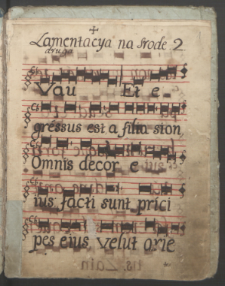 Lamentacya na srode 2
Vau Et e
gressus est a filia sion
Omnis decor e
ius facti sunt prici
pes eius velut arie